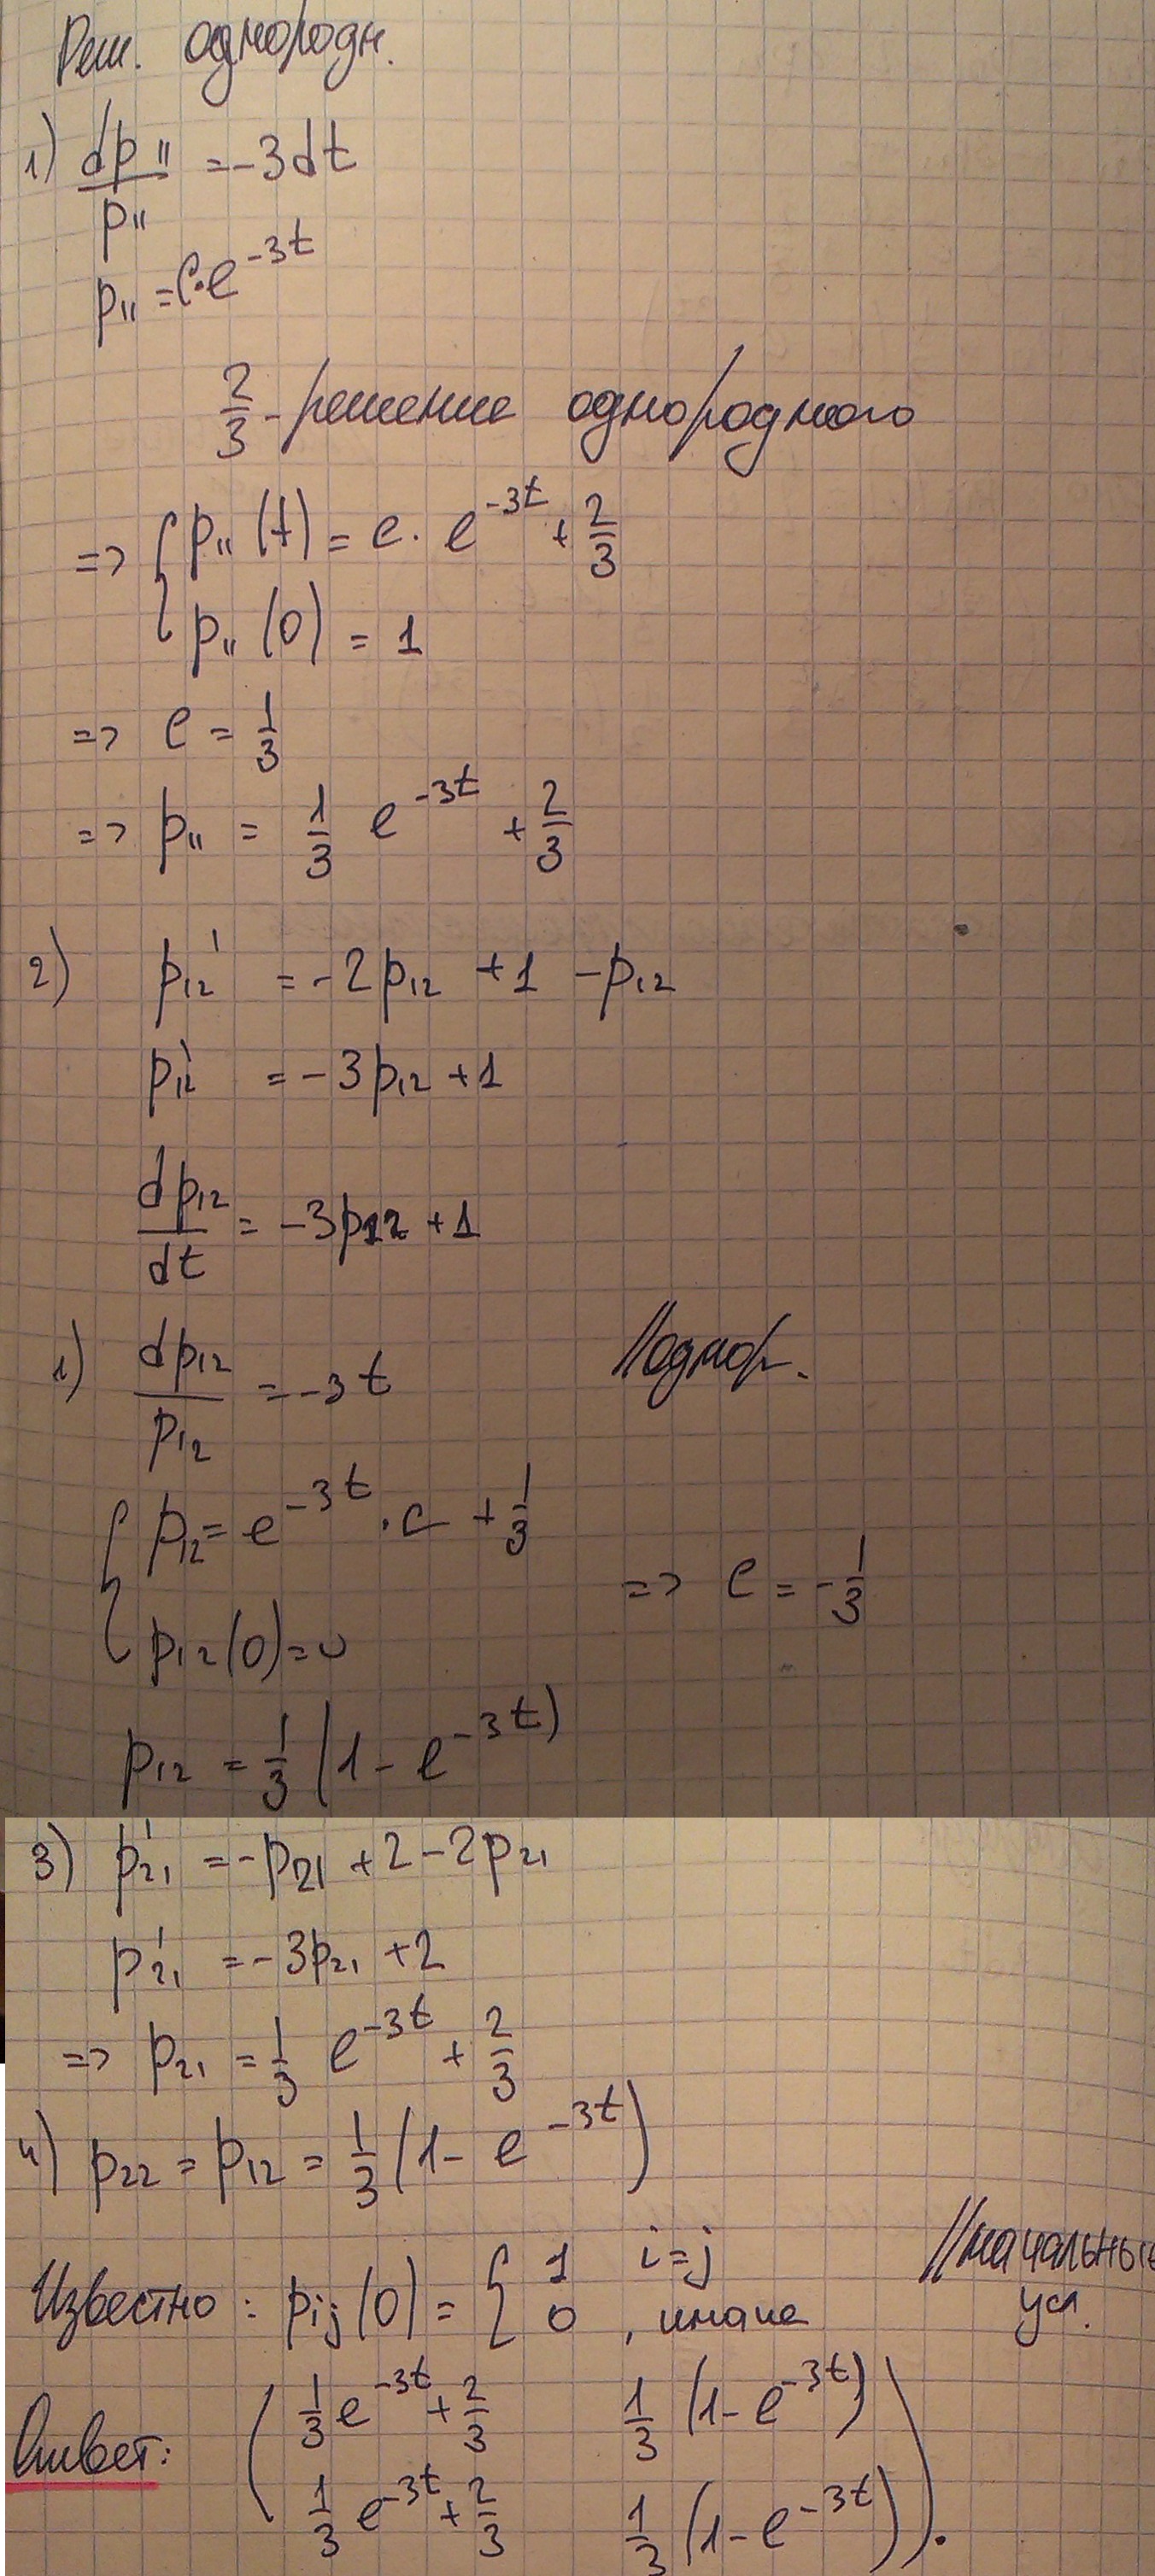 Реш. однородн.
1) dp₁₁/p₁₁ = -3dt
p₁₁ = C·e^(-3t)
2/3 - решение однородного
=> { p₁₁(t) = c · e^(-3t) + 2/3
p₁₁(0) = 1
=> c = 1/3
=> p₁₁ = 1/3 e^(-3t) + 2/3
2) p₁₂' = -2p₁₂ + 1 - p₁₂
p₁₂' = -3p₁₂ + 1
dp₁₂/dt = -3p₁₂ + 1
1) dp₁₂/p₁₂ = -3t //однор.
{ p₁₂ = e^(-3t) · c + 1/3
p₁₂(0) = 0 => c = -1/3
p₁₂ = 1/3 (1 - e^(-3t))
3) p₂₁' = -p₂₁ + 2 - 2p₂₁
p₂₁' = -3p₂₁ + 2
=> p₂₁ = 1/3 e^(-3t) + 2/3
4) p₂₂ = p₁₂ = 1/3 (1 - e^(-3t))
Известно: pij(0) = { 1 i=j //начальные
0 , иначе усл.
Ответ: ( 1/3 e^(-3t) + 2/3 1/3 (1 - e^(-3t))
1/3 e^(-3t) + 2/3 1/3 (1 - e^(-3t)) ).